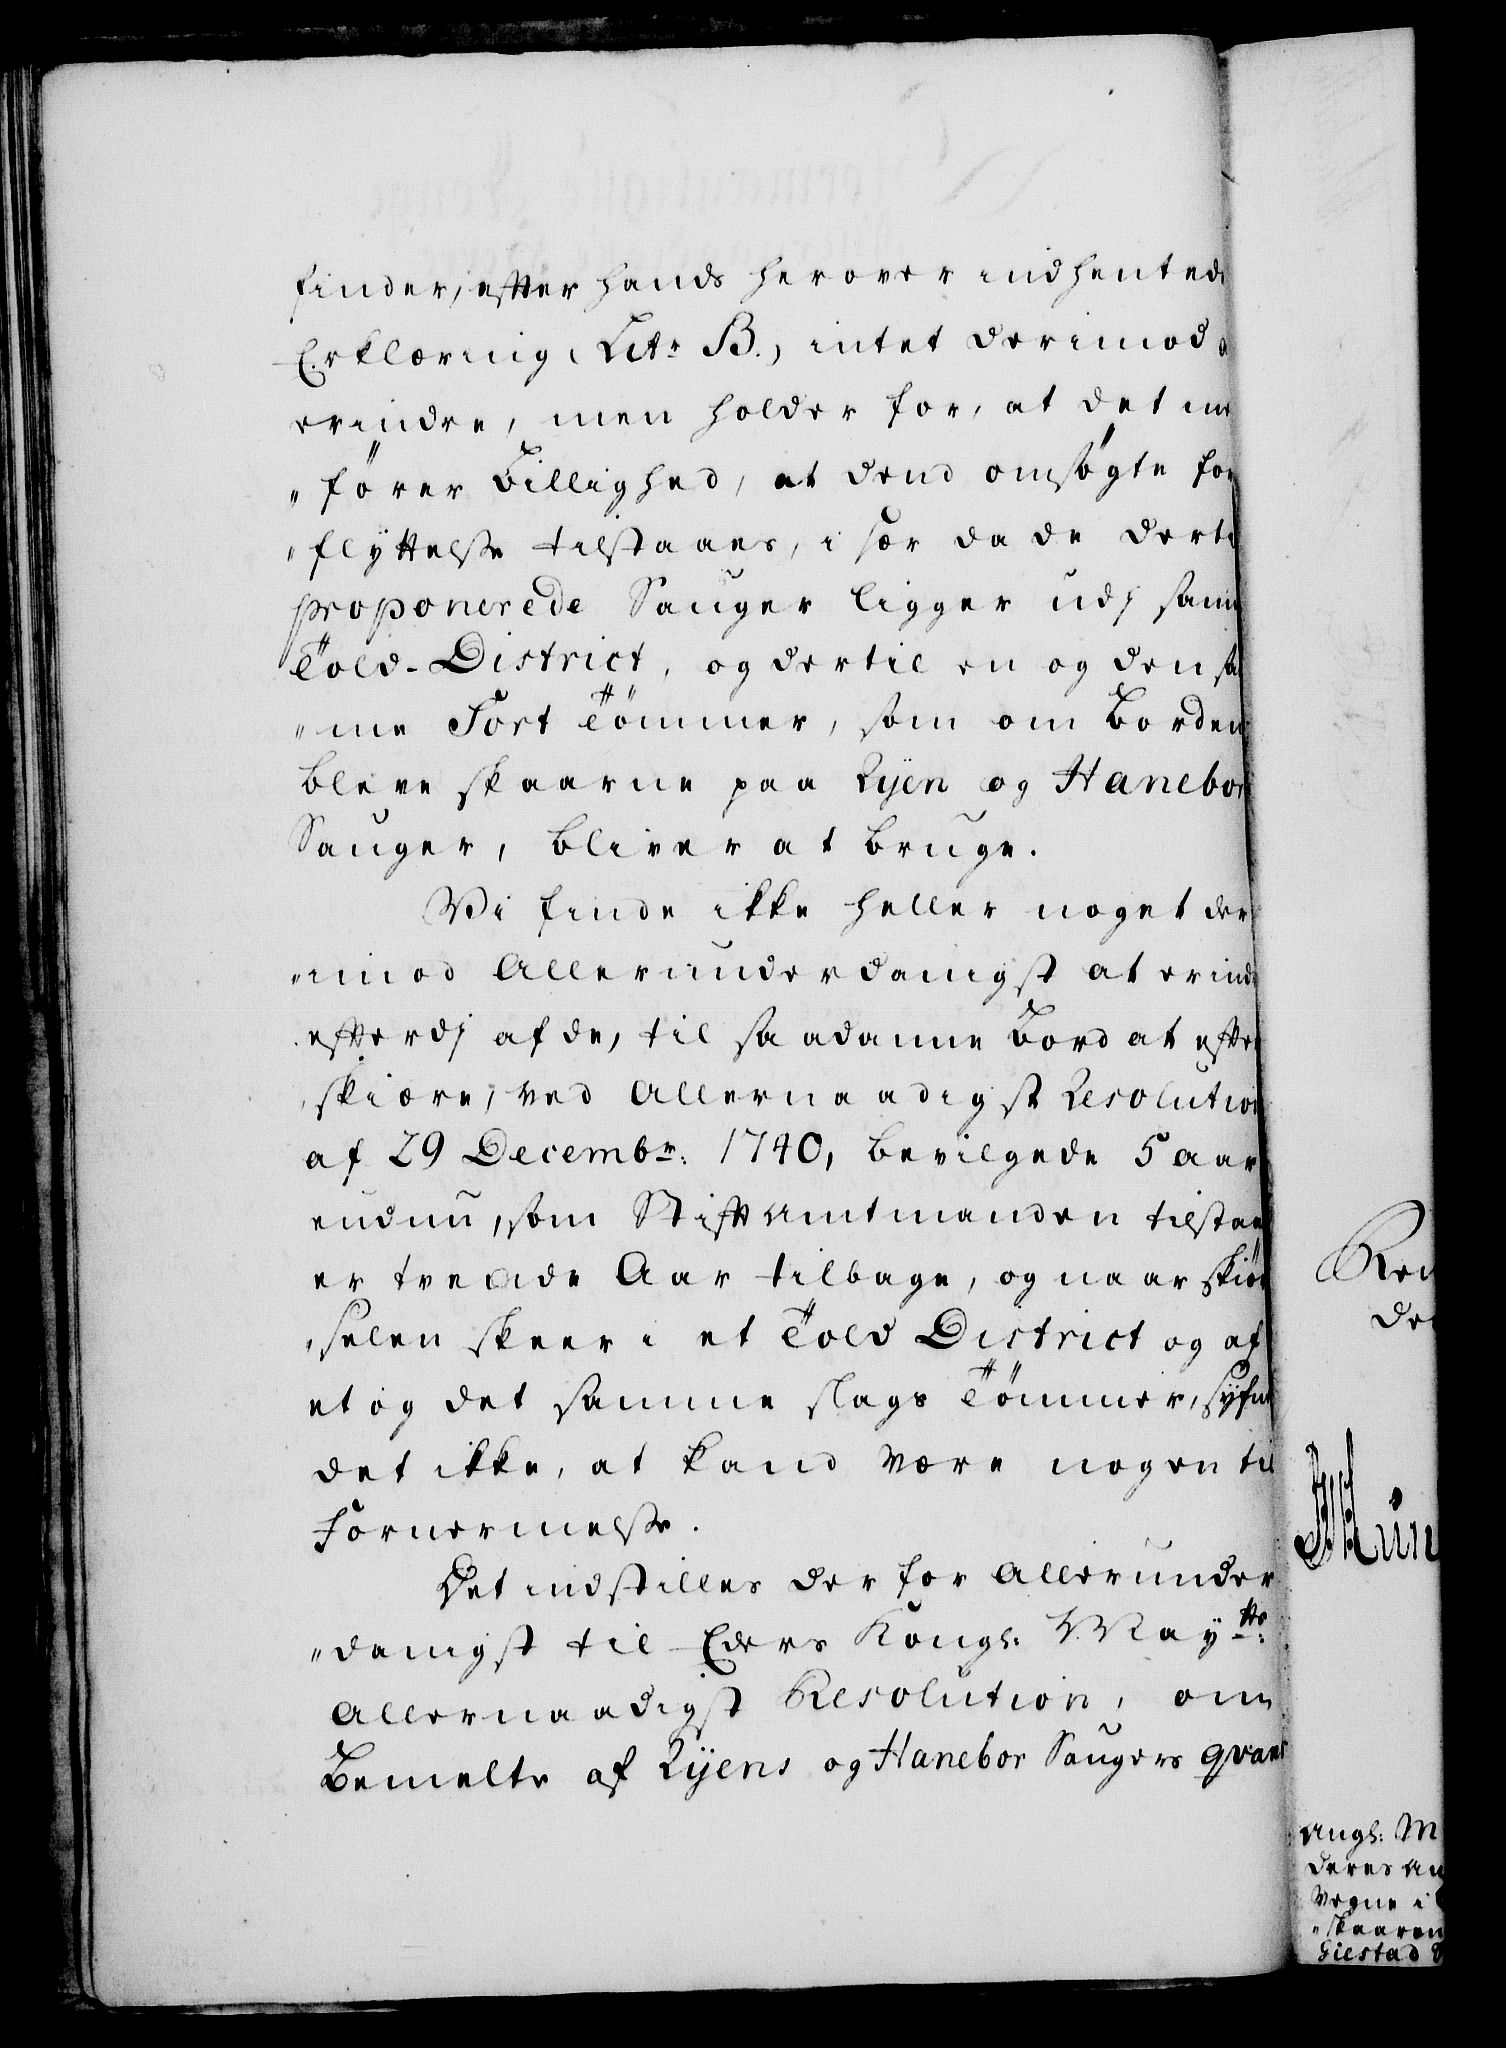 finder, efter hands herover indhentede
Erklæring Litr B., intet derimod a
erindre, men holder for, at det in
"förer Billighed, at dend omsögte for
"flÿttelse tilstaaes, i sær da de derti
proponerede Sauger ligger udj sam
Told-District, og dertil en og den sa
"me Sort Tömmer, som om Borden
bleve skaarne paa Rÿen og Hanebor
Sauger, bliver at bruge.
Vi finde ikke heller noget der
"imod Allerunderdanigst at erind
efterdj af de, til saadanne Bord at efter
"skiære, ved Allernaadigst Resolution
af 29 Decembr: 1740, bevilgede 5 aar
endnu, som Stiftamtmanden tilstaar
er tvende Aar tilbage, og naar skiör
"selen skeer i et Told District og af
et og det samme slags Tömmer, sÿfne
det ikke, at kand være nogen til
Fornermelse.
Det indstilles derfor Allerunder
"danigst til Eders Kongl: Maÿtts:
Allernaadigst Resolution, om
Bemelte af Rÿens og Hanebor Saugers qvan
Ren
de
Mün
ang: M
deres an
Vegne i
"skaaren
Giestad